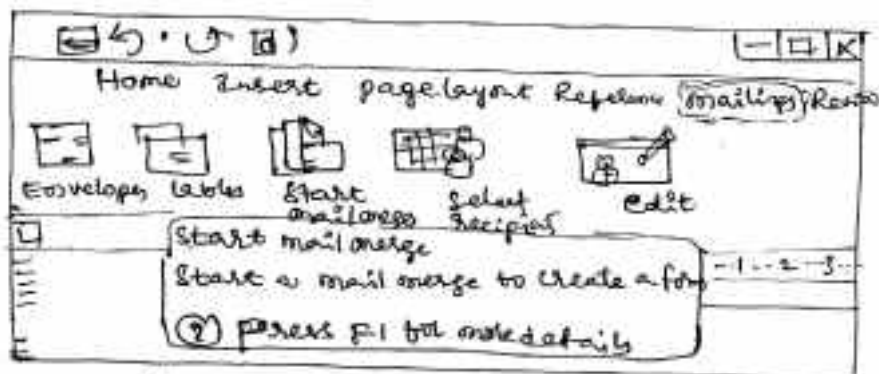 Home Insert pagelayout Reference mailings Review
Envelopes lables Start mailmerge Select recipients Edit
Start mail merge
Start a mail merge to create a form
(?) press F1 for more details
- 1 - - 2 - 3 -